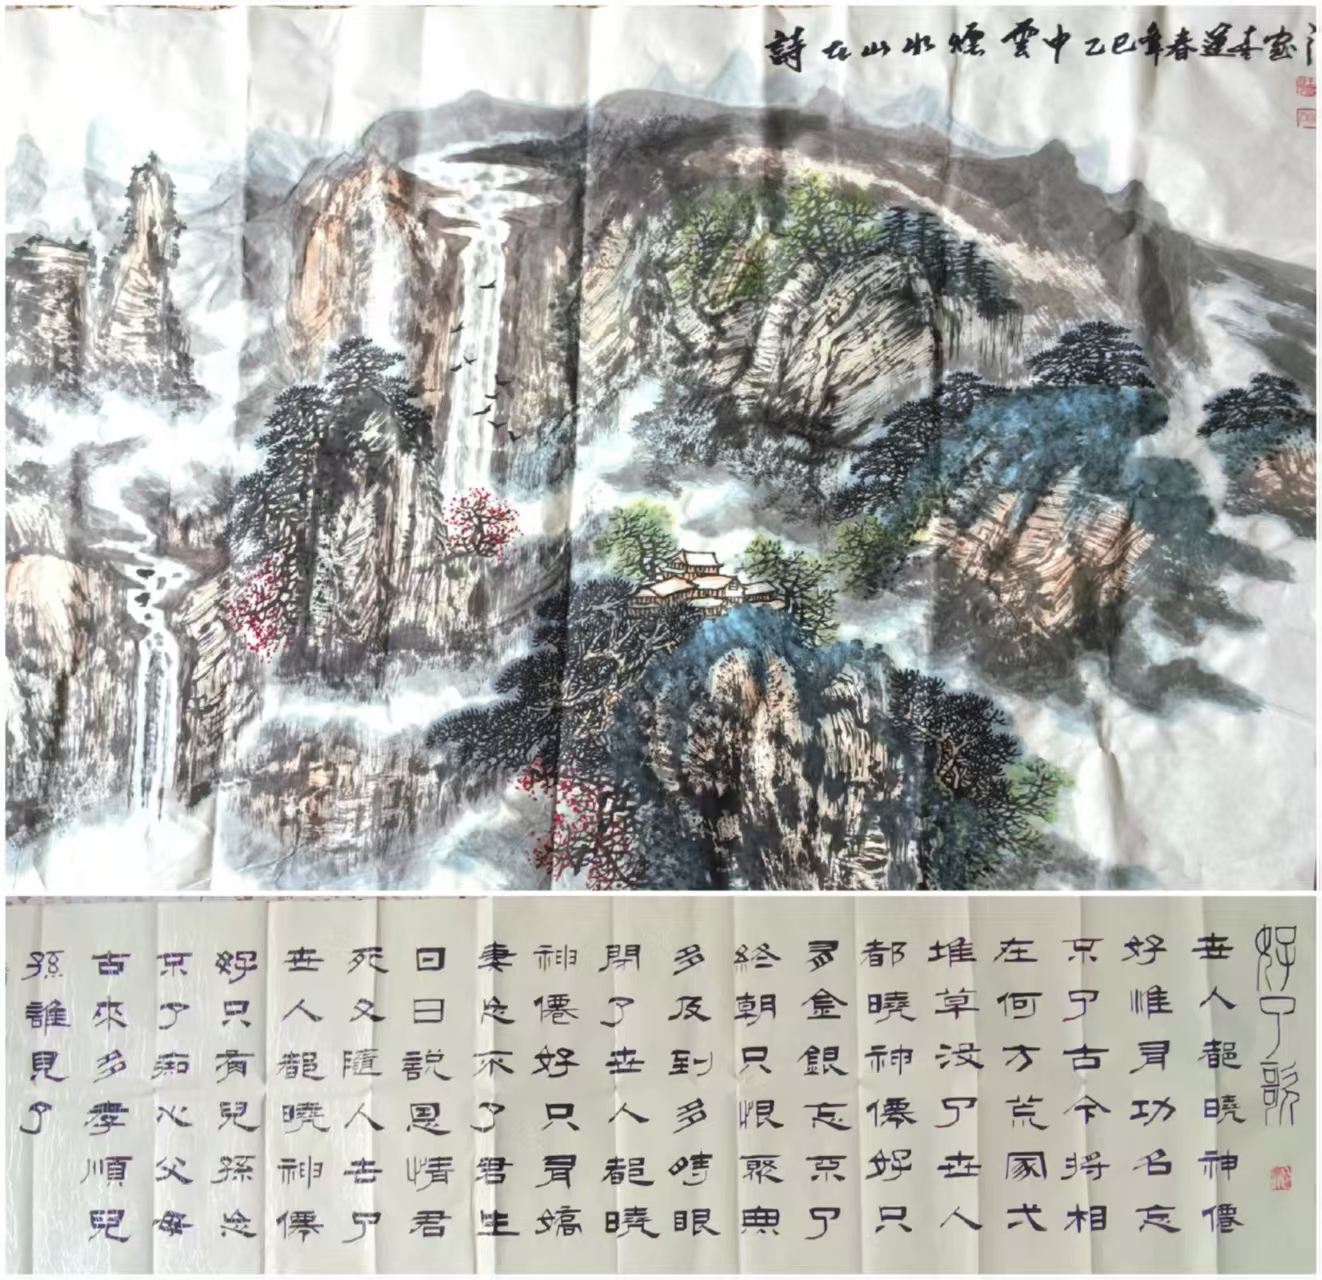 詩在山水煙雲中乙巳年春
好了歌
世人都曉神僊
好惟有功名忘
不了古今將相
在何方荒冢弌
堆草没了世人
都曉神僊好只
有金銀忘不了
終朝只恨聚無
多及到多時眼
閉了世人都曉
神僊好只有嬌
妻忘不了君生
日日説恩情君
死又隨人去了
世人都曉神僊
好只有兒孫忘
不了痴心父母
古來多孝順兒
孫誰見了